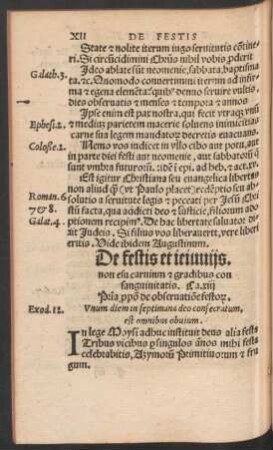 XII DE FESTIS
State & nolite iterum iugo seruitutis cōtine-
ri. Si circūcidimini Chrūs nihil vobis pderit
Galath.3. Ideo ablate sūt neomenie, sabbata, baptisma
ta. &c. Quomodo conuertimini iterum ad infir
ma & egena elemēta: quib⁹ denuo seruire vultis
dies obseruatis & menses & tempora & annos
Ipse enim est pax nostra, qui fecit vtraq; vnū
Ephesi.2. & mediuz parietem macerie soluens inimicitias
carne sua legem mandatoꝝ decretis euacuans.
Colosse.2. Nemo vos iudicet in vllo cibo aut potu, aut
in parte diei festi aut neomenie, aut sabbatoꝝ q̄
sunt vmbra futuroꝝ.
Est igitur Christiana seu euangelica libertas
non aliud q̄ (vt Paulo placet) redēptio seu ab
Roman.6 solutio a seruitute legis & peccati per Jesū Chri
7 & 8. stū facta, qua addicti deo & iusticie, filiorum ado
Galat.4. ptionem recipim⁹. De hac libertate saluator di
xit Judeis. Si filius vos liberauerit, vere liberi
eritis. Vide ibidem Augustinum.
De festis et ieiunijs.
non esu carnium & gradibus con
sanguinitatis. Ca. xiij
Prīa ppō de obseruatiōe festoꝝ.
Vnum diem in septimana deo consecratum,
est omnibus obuium.
Exod.12. In lege Moysi adhuc instituit deus alia festa
Tribus vicibus p singulos annos mihi festa
celebrabitis, Azymorū Primitiuorum & fru
gum.